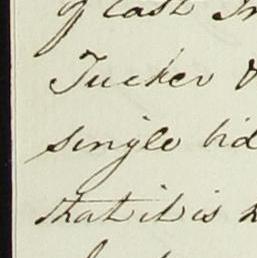 of cast
Tucker &
single bid
that it is